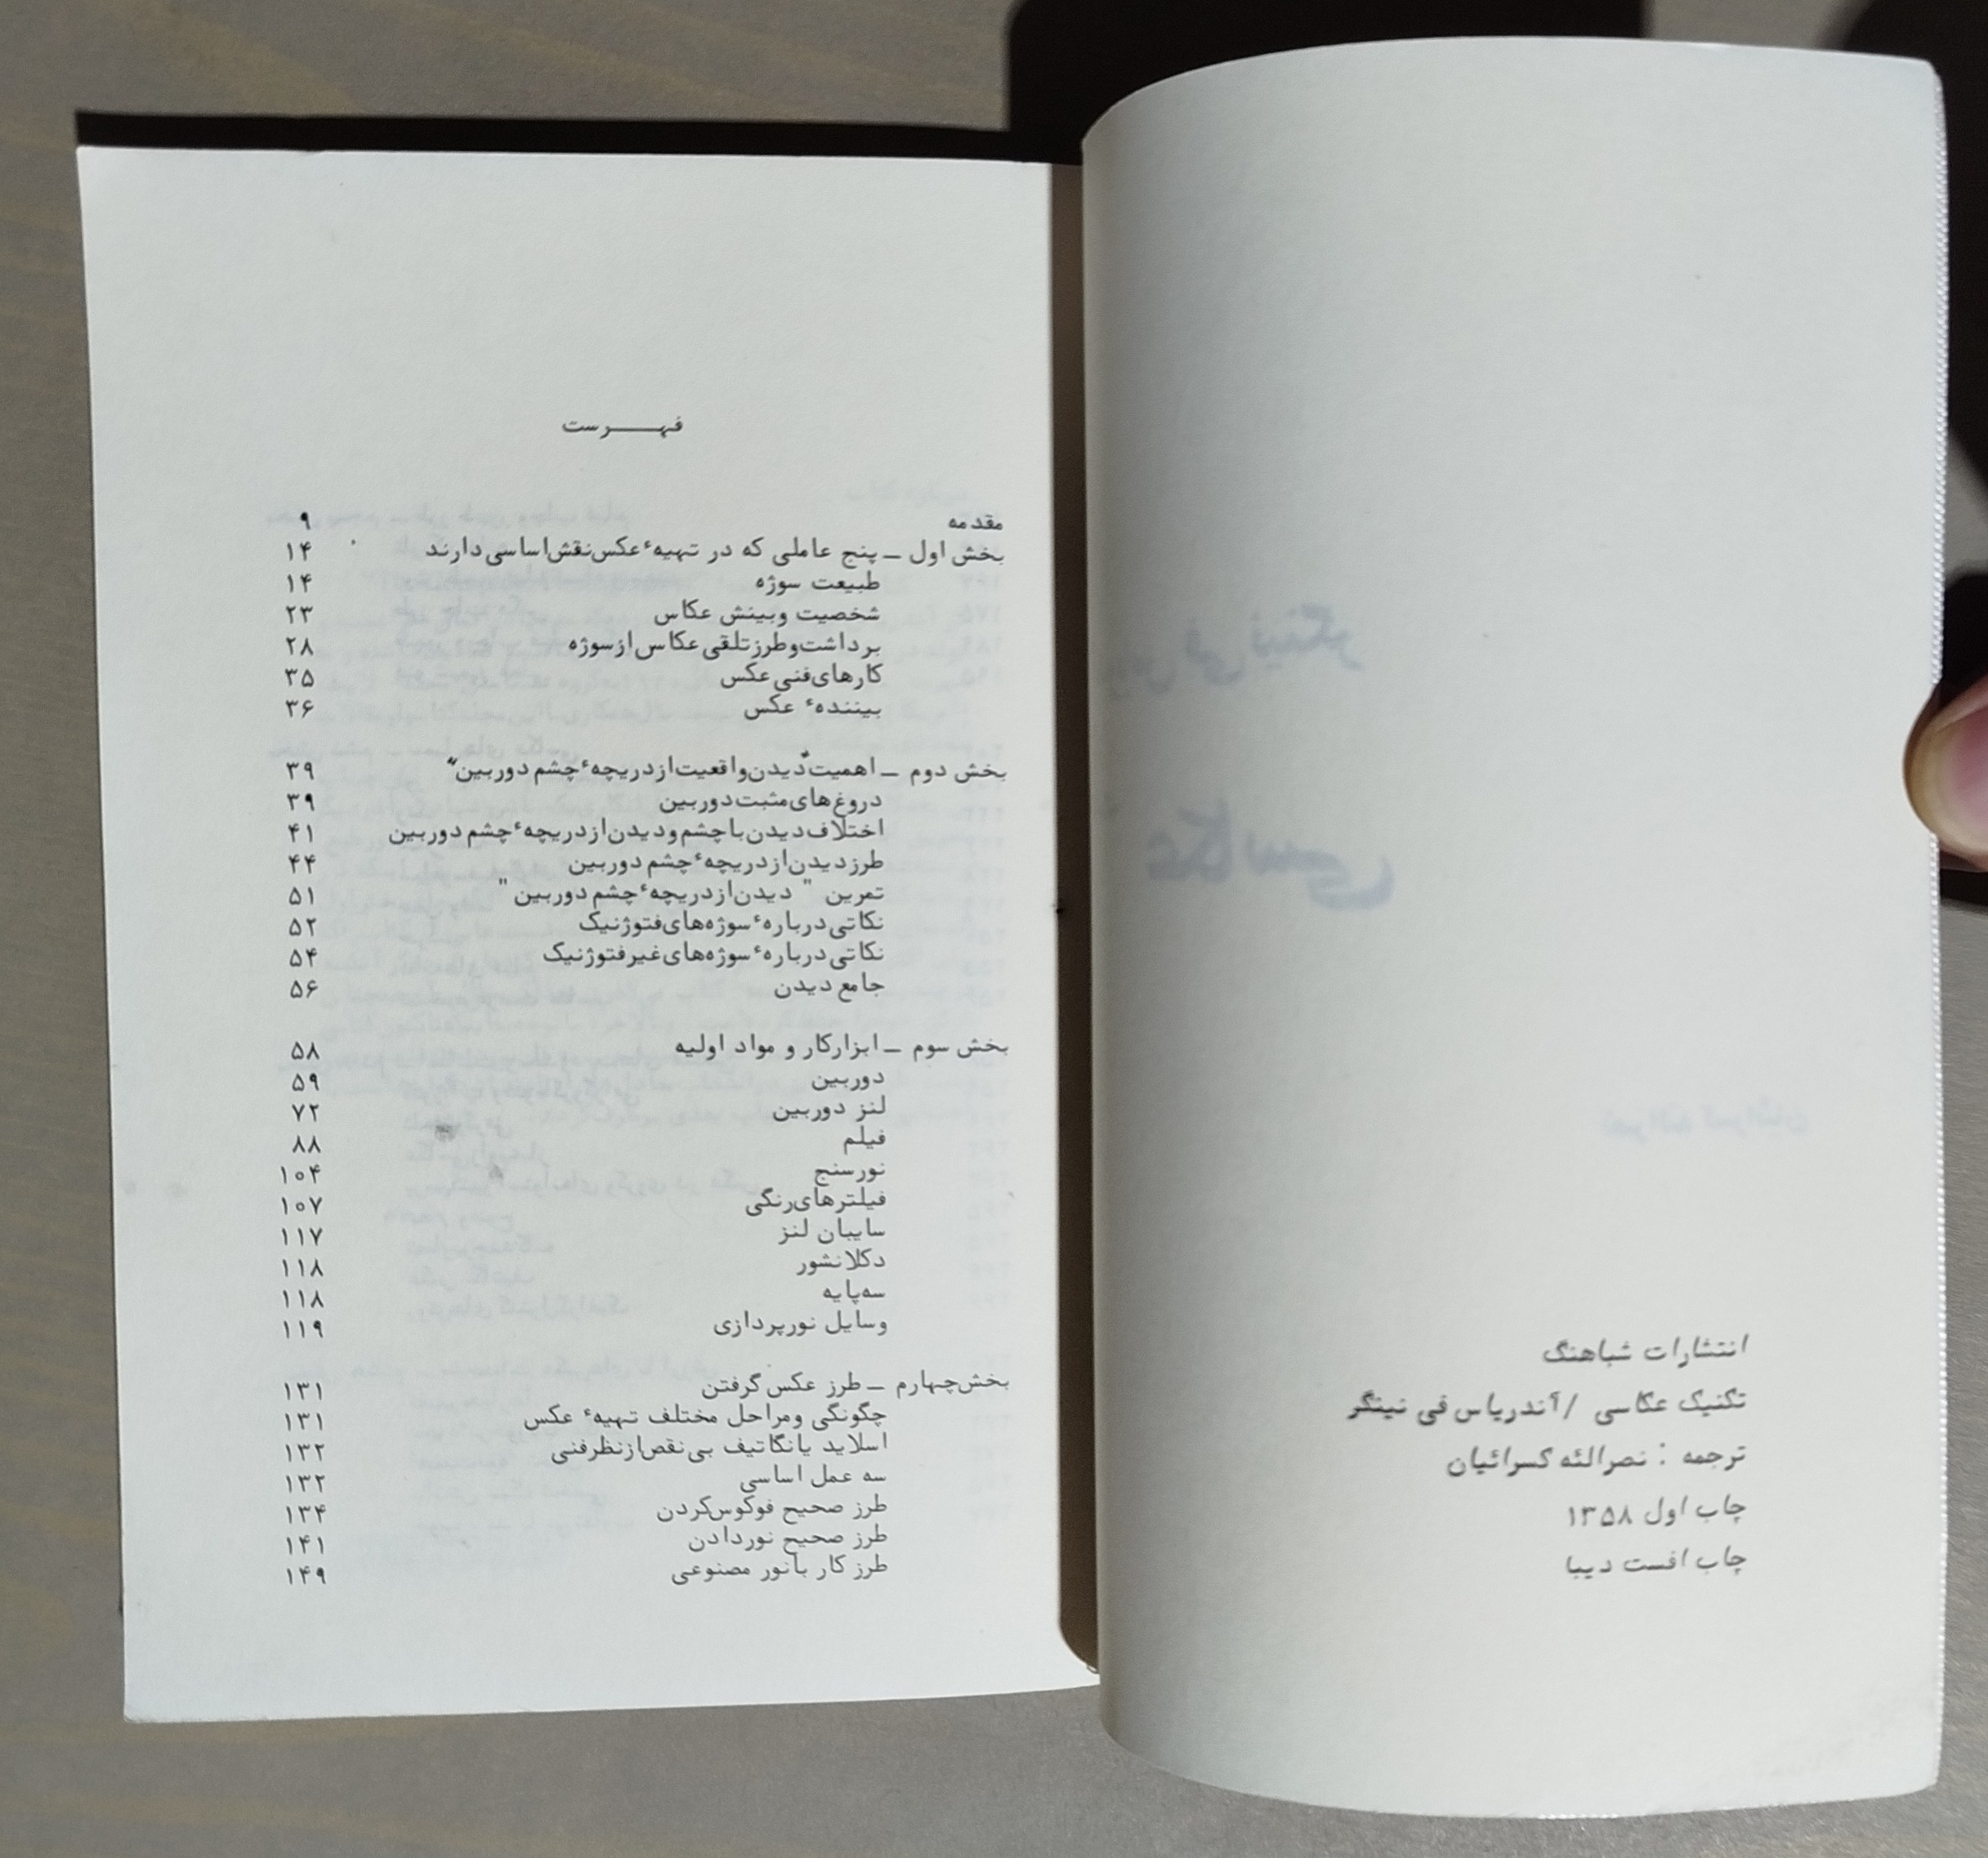 انتشارات شباهنگ
تکنیک عکاسی / آندریاس فی نینگر
ترجمه : نصرالله کسرائیان
چاپ اول ۱۳۵۸
چاپ افست دیبا
فهرست
مقدمه ۹
بخش اول – پنج عاملی که در تهیهٔ عکس نقش اساسی دارند ۱۴
طبیعت سوژه ۱۴
شخصیت وبینش عکاس ۲۳
برداشت و طرز تلقی عکاس از سوژه ۲۸
کارهای فنی عکس ۳۵
بینندهٔ عکس ۳۶
بخش دوم – اهمیت "دیدن واقعیت از دریچهٔ چشم دوربین" ۳۹
دروغ‌های مثبت دوربین ۳۹
اختلاف دیدن با چشم و دیدن از دریچهٔ چشم دوربین ۴۱
طرز دیدن از دریچهٔ چشم دوربین ۴۴
تمرین " دیدن از دریچهٔ چشم دوربین " ۵۱
نکاتی دربارهٔ سوژه‌های فتوژنیک ۵۲
نکاتی دربارهٔ سوژه‌های غیرفتوژنیک ۵۴
جامع دیدن ۵۶
بخش سوم – ابزارکار و مواد اولیه ۵۸
دوربین ۵۹
لنز دوربین ۷۲
فیلم ۸۸
نورسنج ۱۰۴
فیلترهای رنگی ۱۰۷
سایبان لنز ۱۱۷
دکلانشور ۱۱۸
سه‌پایه ۱۱۸
وسایل نورپردازی ۱۱۹
بخش چهارم – طرز عکس گرفتن ۱۳۱
چگونگی ومراحل مختلف تهیهٔ عکس ۱۳۱
اسلاید یا نگاتیف بی‌نقص از نظر فنی ۱۳۲
سه عمل اساسی ۱۳۲
طرز صحیح فوکوس کردن ۱۳۴
طرز صحیح نوردادن ۱۴۱
طرز کار با نور مصنوعی ۱۴۹